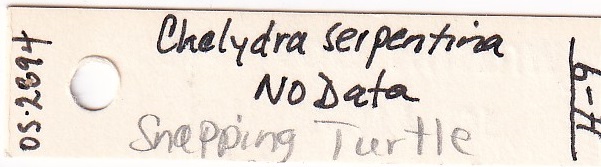 OS-2894
Chelydra serpentina
No Data
Snapping Turtle